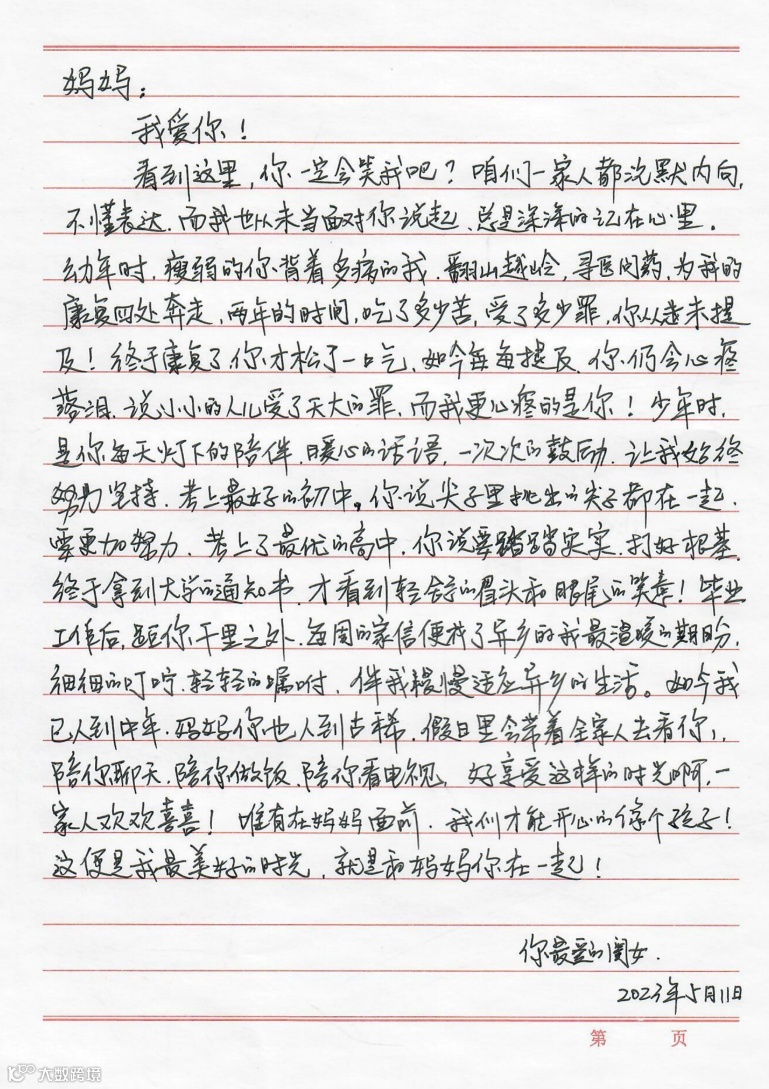 妈妈：
我爱你！
看到这里，你一定会笑我吧？咱们一家人都沉默内向，
不懂表达，而我也从未当面对你说起，总是深深的记在心里。
幼年时，瘦弱的你背着多病的我，翻山越岭，寻医问药，为我的
康复四处奔走，两年的时间，吃了多少苦，受了多少罪，你从未提
及！终于康复了，你才松了一口气，如今每每提及，你仍会心疼
落泪，说小小的人儿受了天大的罪，而我更心疼的是你！少年时，
是你每天灯下的陪伴，暖心的话语，一次次的鼓励，让我始终
努力坚持，考上最好的初中。你说尖子里挑出的尖子都在一起，
要更加努力，考上了最优的高中，你说要踏踏实实，打好根基。
终于拿到大学的通知书，才看到轻舒的眉头和眼尾的笑意！毕业
工作后，距你千里之外，每周的家信便成了异乡的我最温暖的期盼，
细细的叮咛，轻轻的嘱咐，伴我慢慢适应异乡的生活。如今我
已人到中年，妈妈你也人到古稀，假日里会带着全家人去看你，
陪你聊天，陪你做饭，陪你看电视，好享受这样的时光啊，一
家人欢欢喜喜！唯有在妈妈面前，我们才能开心的像个孩子！
这便是我最美好的时光，就是和妈妈你在一起！
你最爱的闺女．
2023年5月11日
第 页
大数跨境